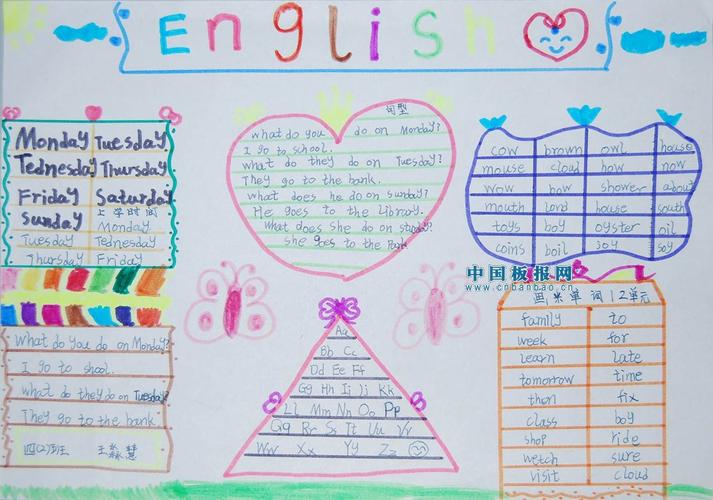 English
Monday Tuesday
Tednesday Thursday
Friday Saturday
Sunday 上学时间
Monday
Tuesday Tednesday
Thursday Friday
句型
what do you do on Monday?
I go to school.
what do they do on Tuesday?
They go to the bank.
what does he do on sunday?
He goes to the Library.
What does she do on sunday?
she goes to the Park
cow brown owl house
mouse cloud how now
wow bow shower about
mouth loud house south
toys boy oyster oil
coins boil joy soy
中国板报网
www.cnbanbao.cn
What do you do on Monday?
I go to shool.
what do they do on Tuesday?
They go to the bank.
四(2)班 王淼慧
Aa
Bb Cc
Dd Ee Ff
Gg Hh Ii Jj Kk
Ll Mm Nn Oo Pp
Qq Rr Ss Tt Uu Vv
Ww Xx Yy Zz
单词 12单元
family to
week for
learn late
tomorrow time
then fix
class boy
shop ride
wetch sure
visit cloud